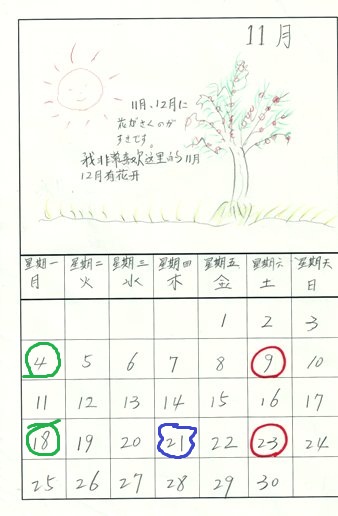 11月
11月、12月に
花がさくのが
すきです。
我非常喜欢这里的11月
12月有花开
星期一 星期二 星期三 星期四 星期五 星期六 星期天
月 火 水 木 金 土 日
1 2 3
4 5 6 7 8 9 10
11 12 13 14 15 16 17
18 19 20 21 22 23 24
25 26 27 28 29 30